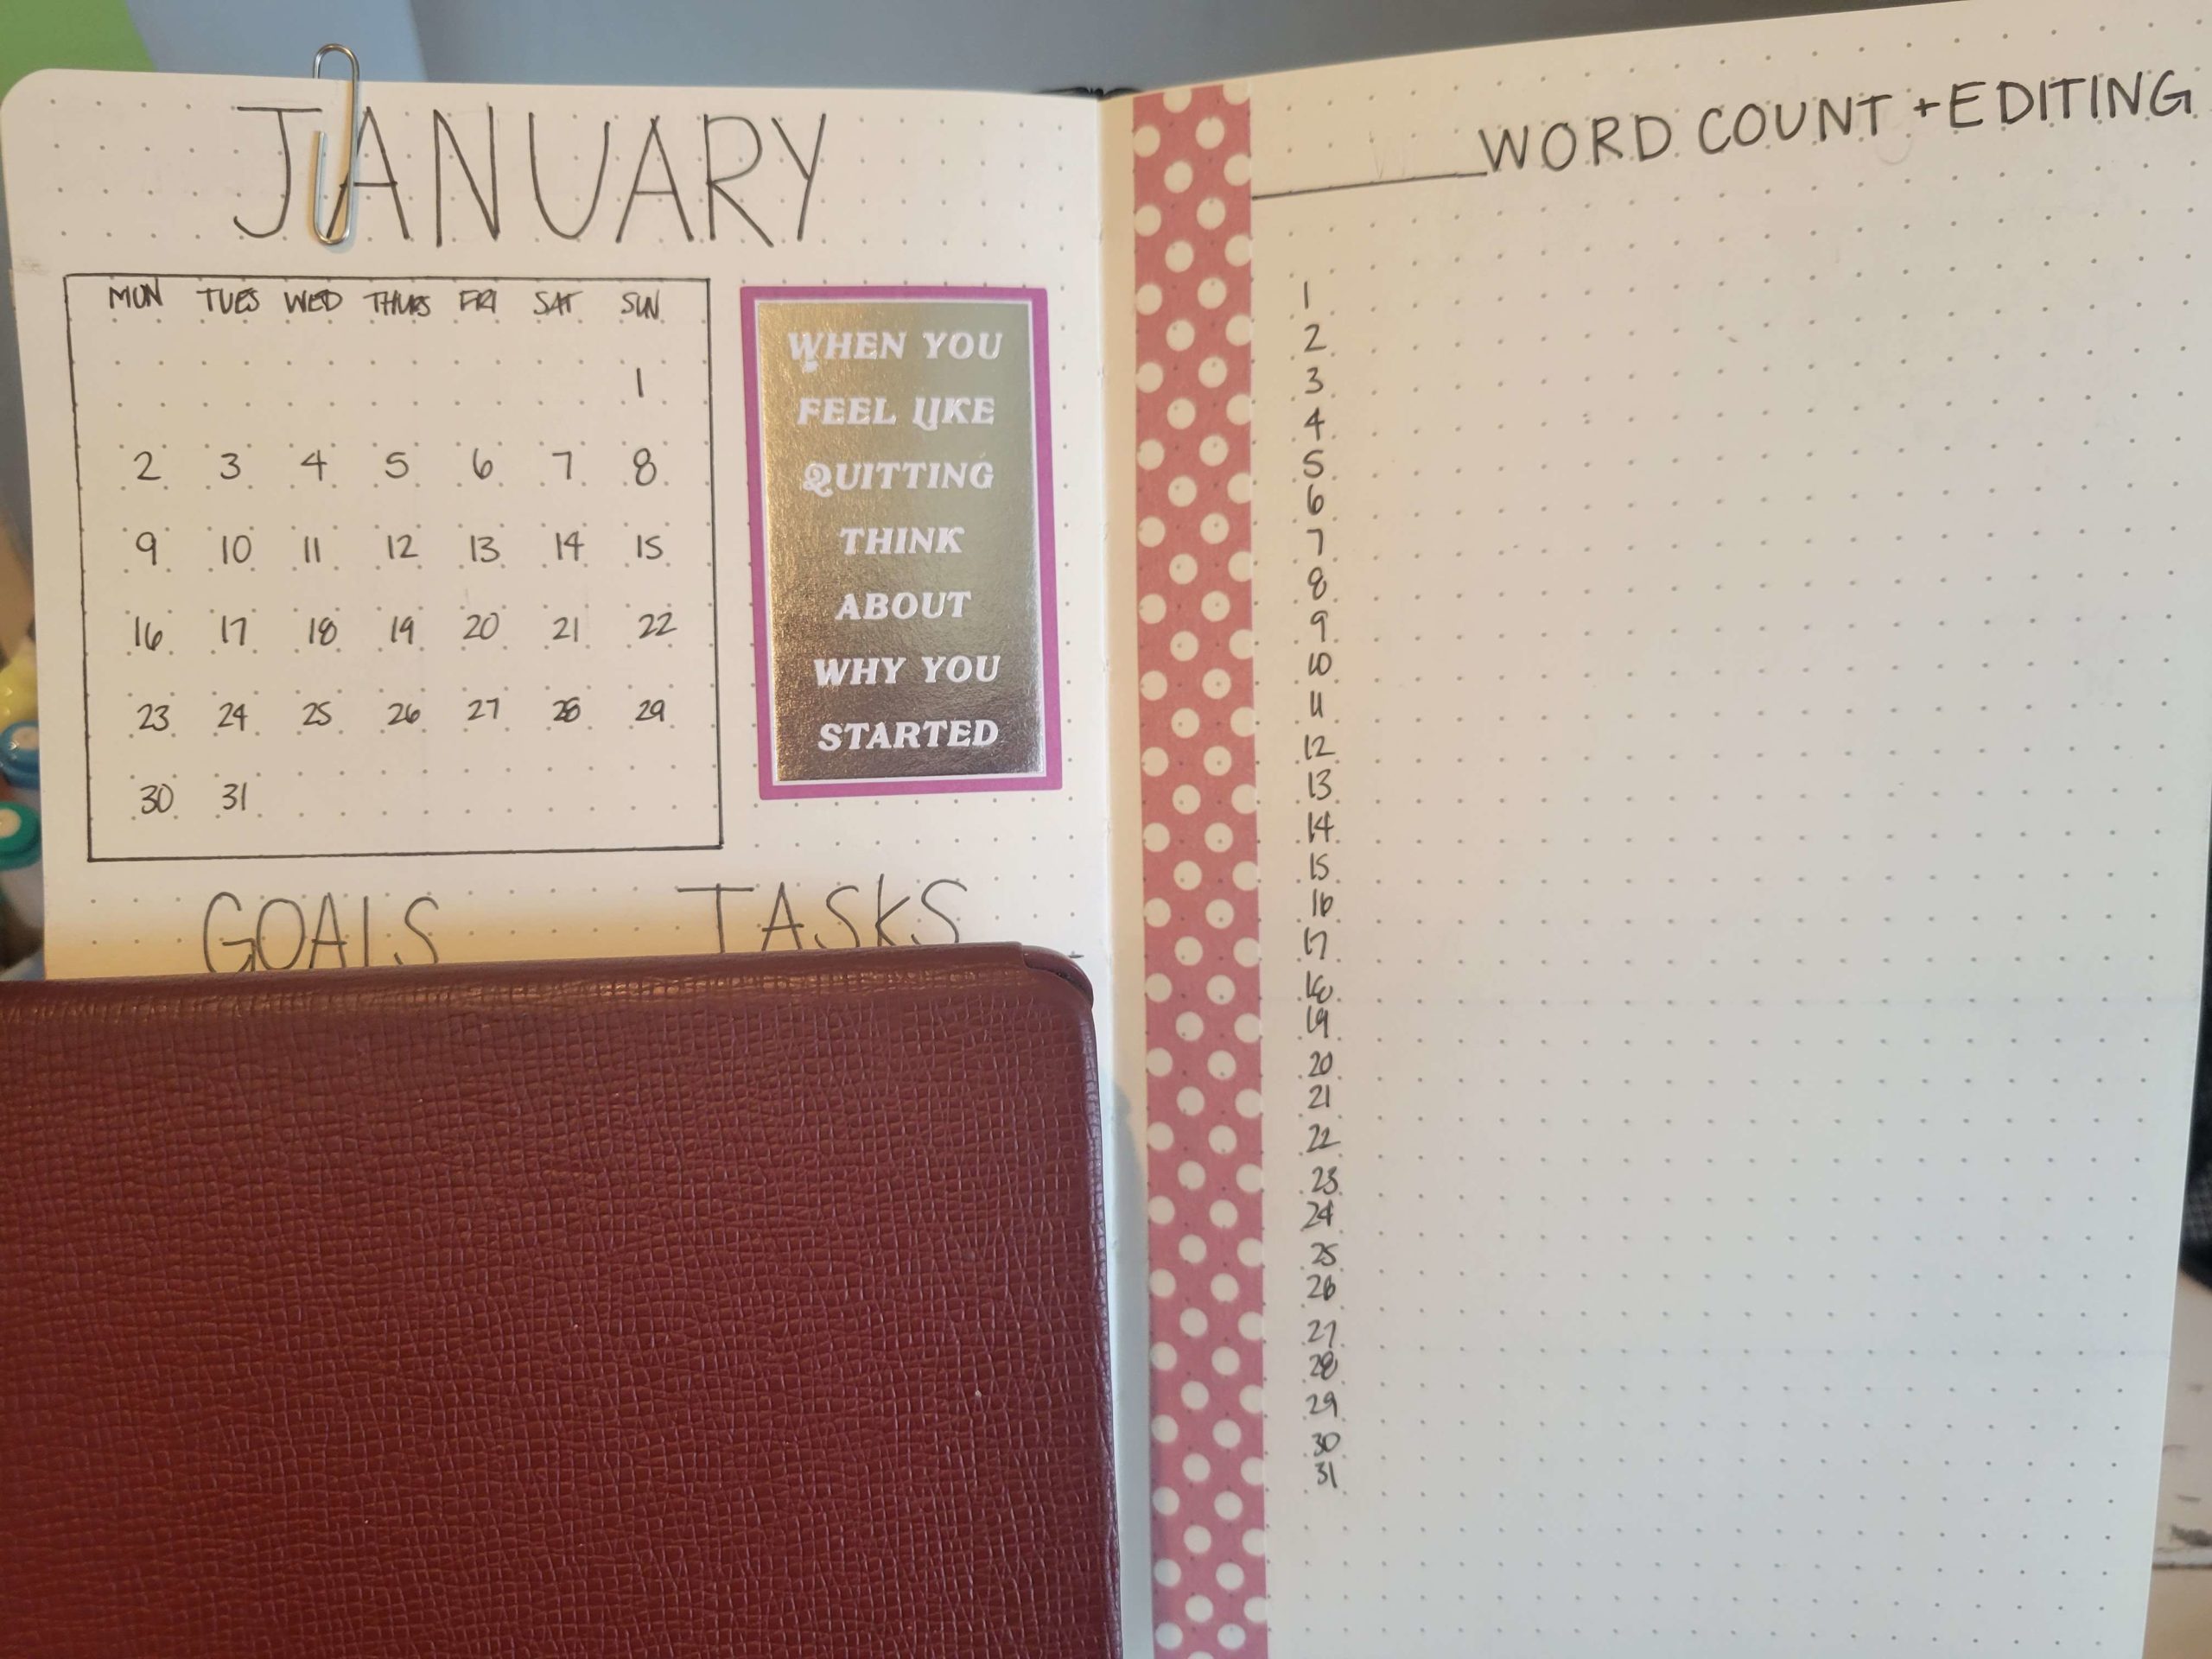 JANUARY
MON TUES WED THURS FRI SAT SUN
1
2 3 4 5 6 7 8
9 10 11 12 13 14 15
16 17 18 19 20 21 22
23 24 25 26 27 28 29
30 31
WHEN YOU
FEEL LIKE
QUITTING
THINK
ABOUT
WHY YOU
STARTED
GOALS TASKS
WORD COUNT + EDITING
1
2
3
4
5
6
7
8
9
10
11
12
13
14
15
16
17
18
19
20
21
22
23
24
25
26
27
28
29
30
31